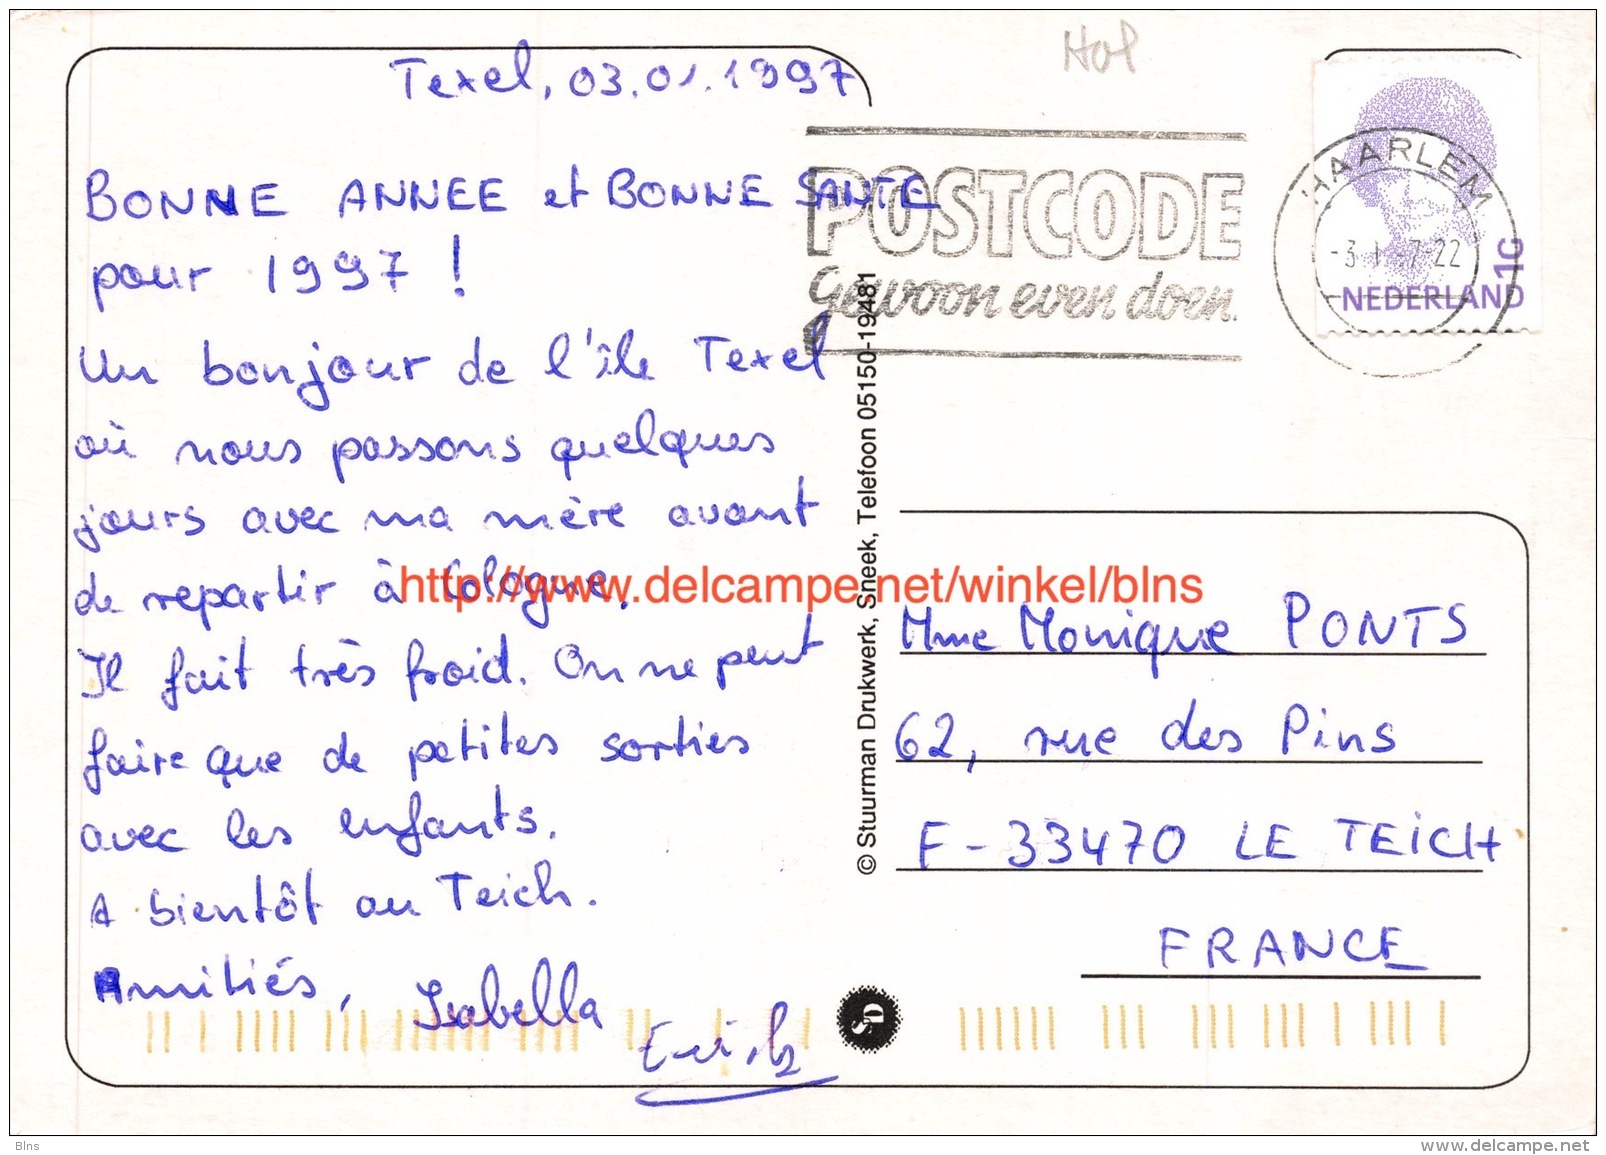 Hol
Texel, 03.01.1997
BONNE ANNEE et BONNE SANTE
pour 1997 !
Un bonjour de l'île Texel
où nous passons quelques
jours avec ma mère avant
de repartir à Cologne.
Il fait très froid. On ne peut
faire que de petites sorties
avec les enfants.
A bientôt au Teich.
Amitiés, Isabella
Erich
POSTCODE
Gewoon even doen.
HAARLEM
-3 I -7 22
NEDERLAND
© Sturman Drukwerk, Sneek, Telefoon 05150-19481
http://www.delcampe.net/winkel/blns
Mme Monique PONTS
62, rue des Pins
F-33470 LE TEICH
FRANCE
SD
Blns
www.delcampe.net